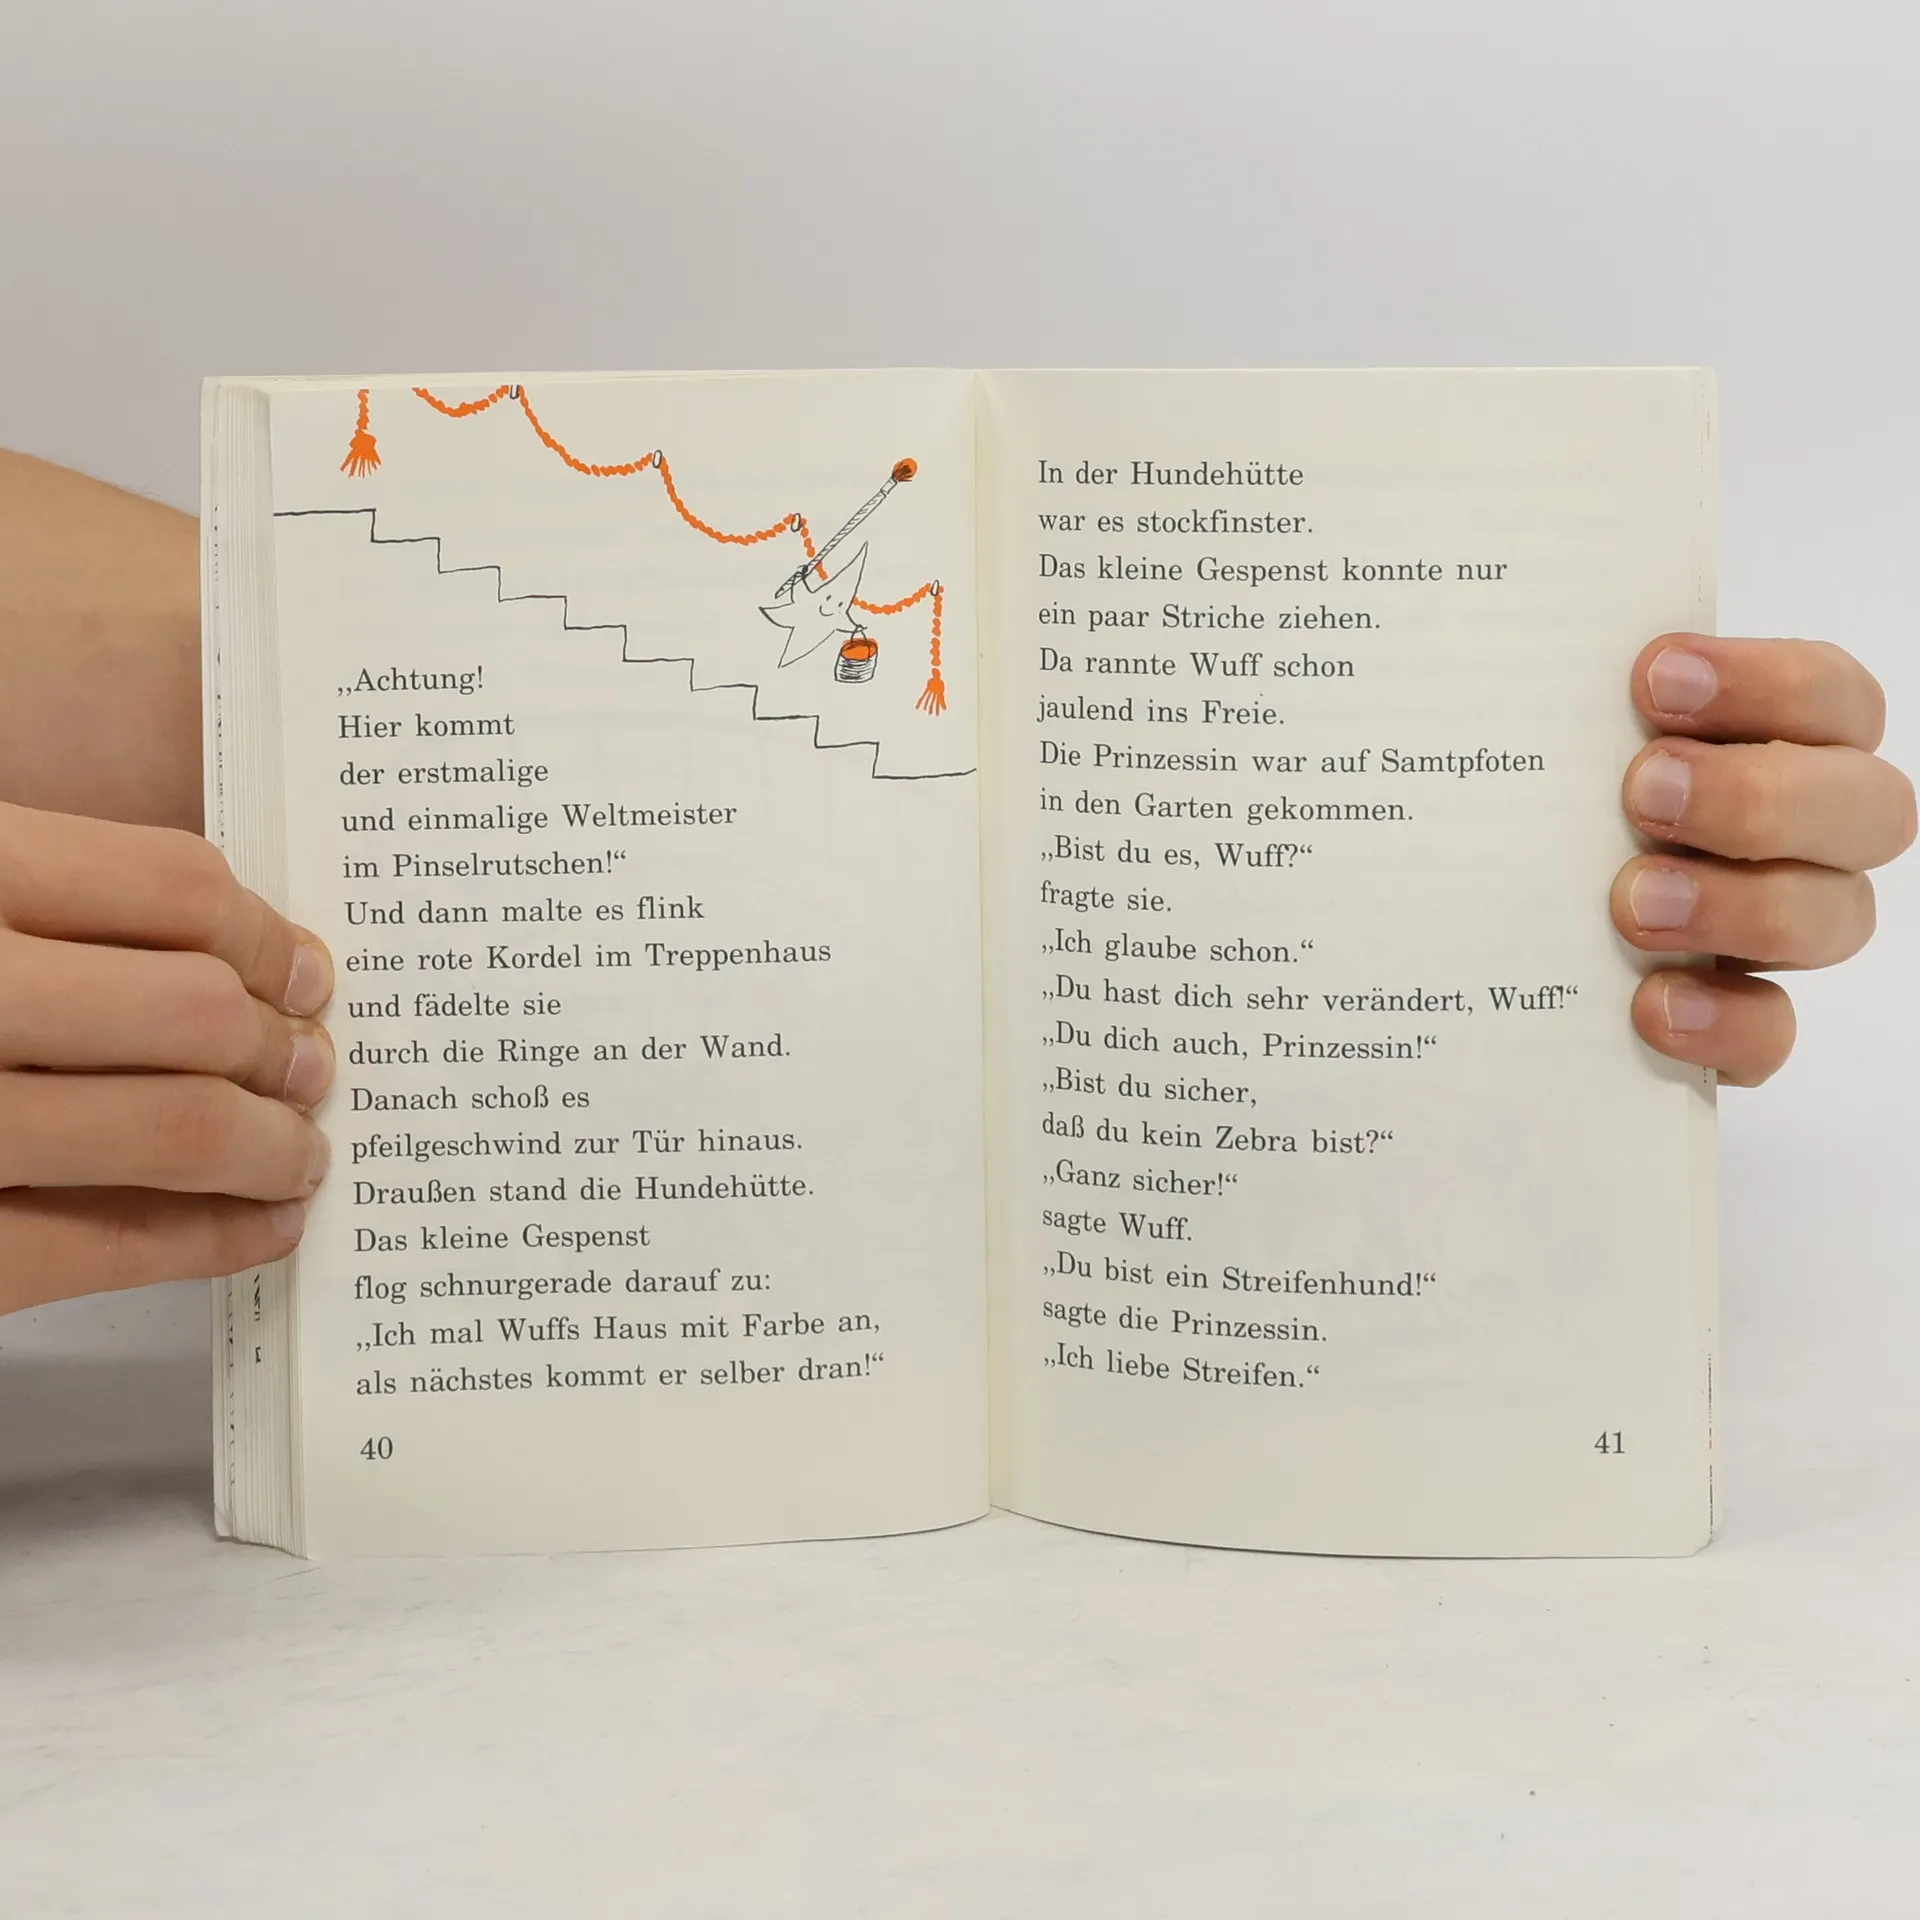 „Achtung!
Hier kommt
der erstmalige
und einmalige Weltmeister
im Pinselrutschen!“
Und dann malte es flink
eine rote Kordel im Treppenhaus
und fädelte sie
durch die Ringe an der Wand.
Danach schoß es
pfeilgeschwind zur Tür hinaus.
Draußen stand die Hundehütte.
Das kleine Gespenst
flog schnurgerade darauf zu:
„Ich mal Wuffs Haus mit Farbe an,
als nächstes kommt er selber dran!“
40
In der Hundehütte
war es stockfinster.
Das kleine Gespenst konnte nur
ein paar Striche ziehen.
Da rannte Wuff schon
jaulend ins Freie.
Die Prinzessin war auf Samtpfoten
in den Garten gekommen.
„Bist du es, Wuff?“
fragte sie.
„Ich glaube schon.“
„Du hast dich sehr verändert, Wuff!“
„Du dich auch, Prinzessin!“
„Bist du sicher,
daß du kein Zebra bist?“
„Ganz sicher!“
sagte Wuff.
„Du bist ein Streifenhund!“
sagte die Prinzessin.
„Ich liebe Streifen.“
41